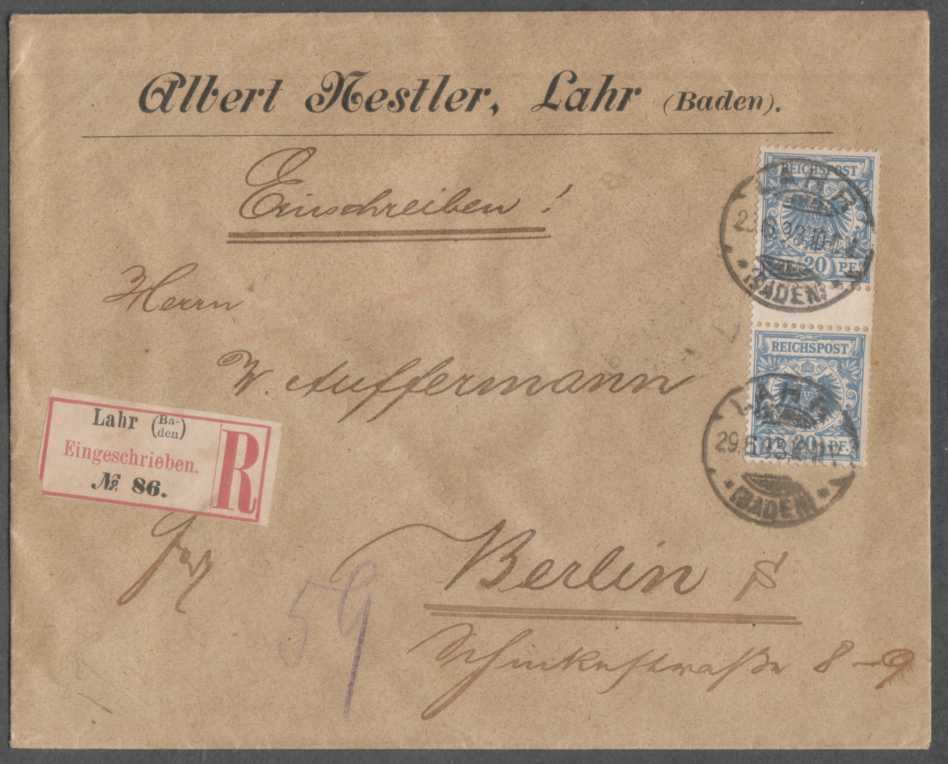 Albert Nestler, Lahr (Baden).
Einschreiben!
REICHSPOST
20 PF.
LAHR
(BADEN)
Herrn
REICHSPOST
20 PF.
W. Auffermann
LAHR
29.6.93
(BADEN)
Lahr (Ba-den)
Eingeschrieben.
№ 86.
R
Berlin S
59
8-9